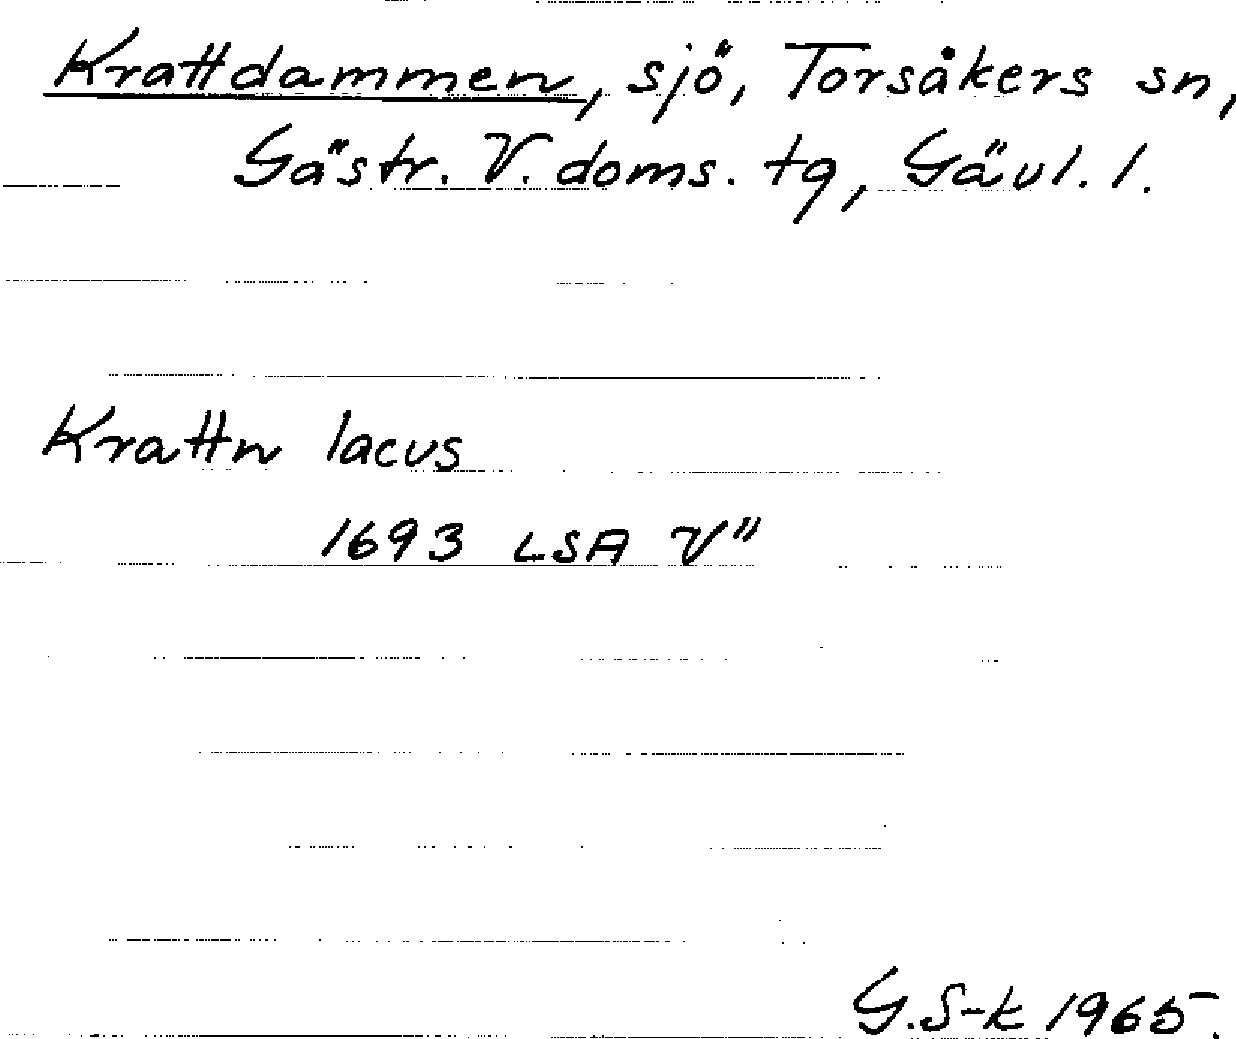 Krattdammen, sjö, Torsåkers sn,
Gästr. V. doms. tg, Gävl. l.
Krattn lacus
1693 LSA V"
G.S-k 1965.